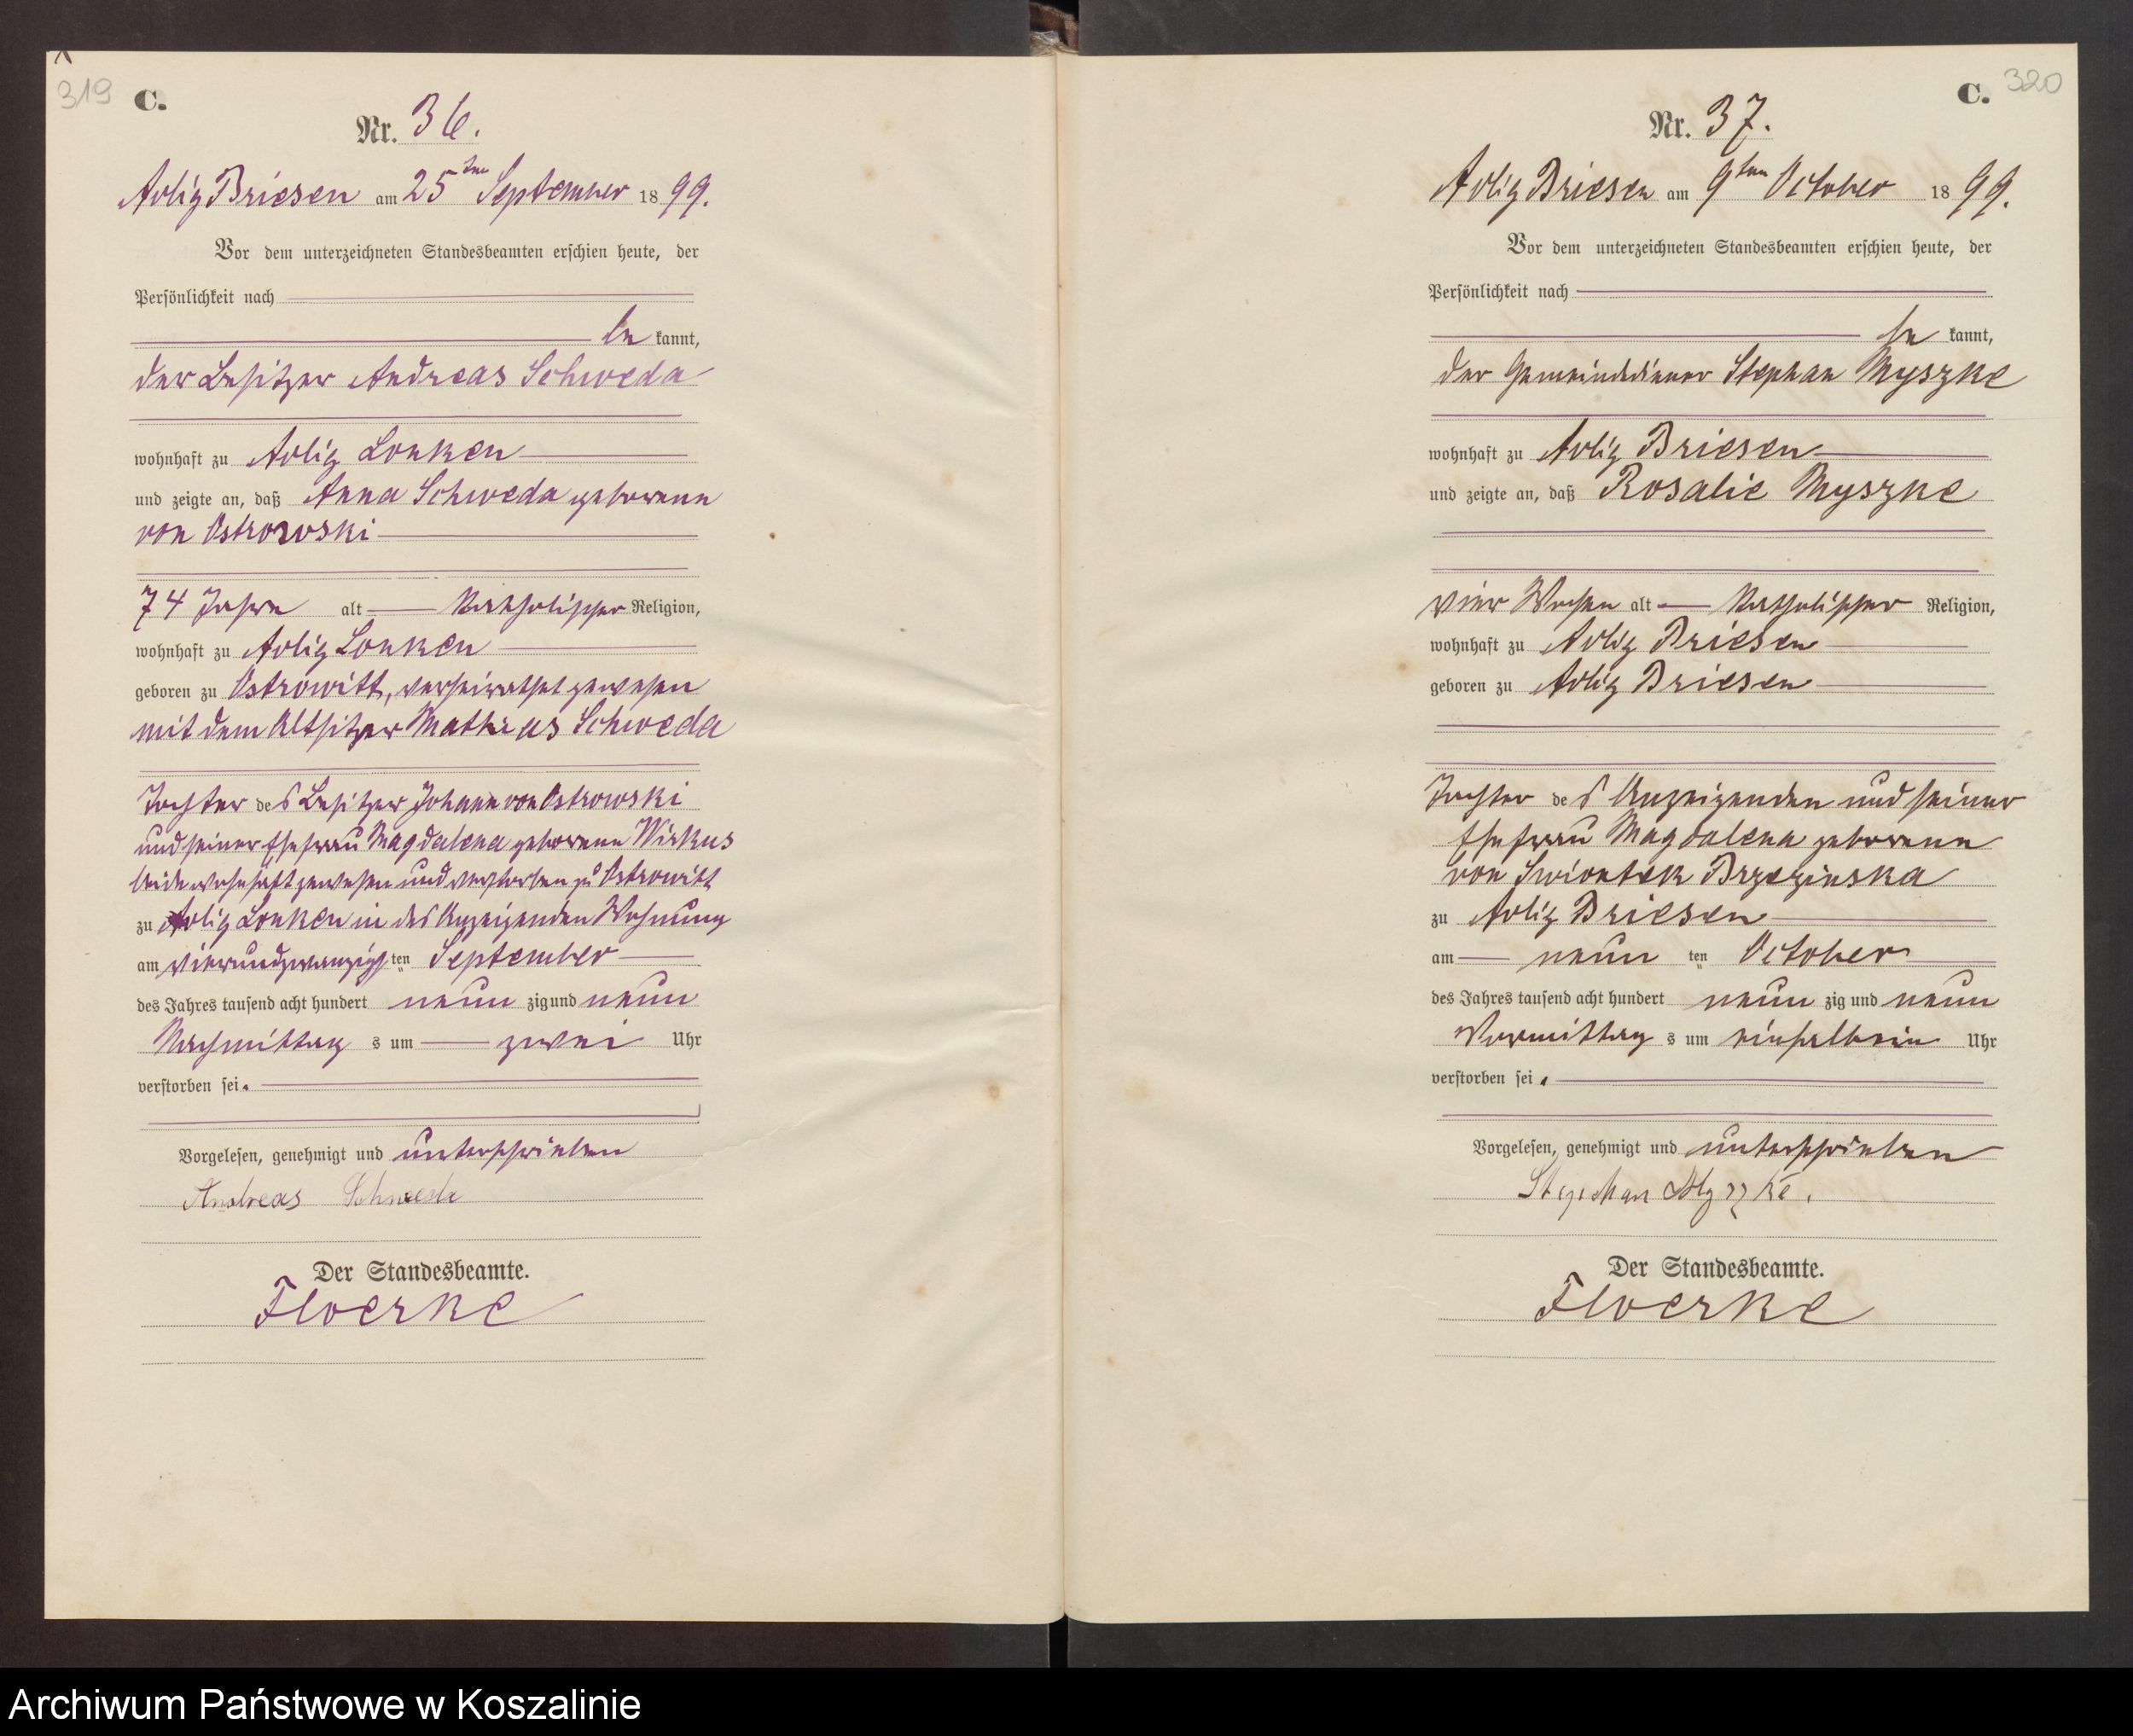 319
C.
Nr. 36.
Adlig Briesen am 25ten September 1899.
Vor dem unterzeichneten Standesbeamten erschien heute, der
Persönlichkeit nach
be kannt,
der Besitzer Andreas Schweda
wohnhaft zu Adlig Lonken
und zeigte an, daß Anna Schweda geborene
von Ostrowski
74 Jahre alt katholischer Religion,
wohnhaft zu Adlig Lonken
geboren zu Ostrowitt, verheirathet gewesen
mit dem Altsitzer Mathias Schweda
Tochter des Besitzer Johann von Ostrowski
und seiner Ehefrau Magdalena geborene Wirkus
beide wohnhaft gewesen und verstorben zu Ostrowitt
zu Adlig Lonken in des Anzeigenden Wohnung
am vierundzwanzigsten September
des Jahres tausend acht hundert neunzig und neun
Nachmittags um zwei Uhr
verstorben sei.
Vorgelesen, genehmigt und unterschrieben
Andreas Schweda
Der Standesbeamte.
Floerke
320
C.
Nr. 37.
Adlig Briesen am 9ten October 1899.
Vor dem unterzeichneten Standesbeamten erschien heute, der
Persönlichkeit nach
be kannt,
der Gemeindediener Stephan Myszke
wohnhaft zu Adlig Briesen
und zeigte an, daß Rosalie Myszke
vier Wochen alt katholischer Religion,
wohnhaft zu Adlig Briesen
geboren zu Adlig Briesen
Tochter des Anzeigenden und seiner
Ehefrau Magdalena geborene
von Swiontek Brzezinska
zu Adlig Briesen
am neunten October
des Jahres tausend acht hundert neunzig und neun
Vormittags um einhalbein Uhr
verstorben sei.
Vorgelesen, genehmigt und unterschrieben
Stephan Myszke.
Der Standesbeamte.
Floerke
Archiwum Państwowe w Koszalinie